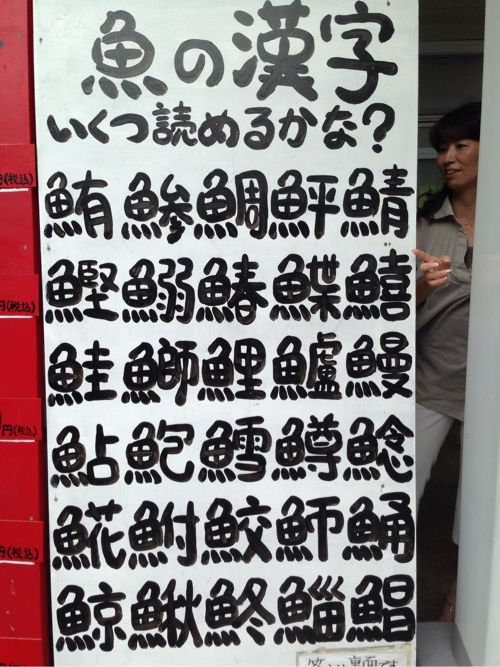 魚の漢字
いくつ読めるかな?
鮪鯵鯛鮃鯖
鰹鰯鰆鰈鱚
鮭鰤鯉鱸鰻
鮎鮑鱈鱒鯰
𩸽鮒鮫魳鯒
鯨鰍鮗鯔鯧
裏面
円(税込)
円(税込)
円(税込)
円(税込)